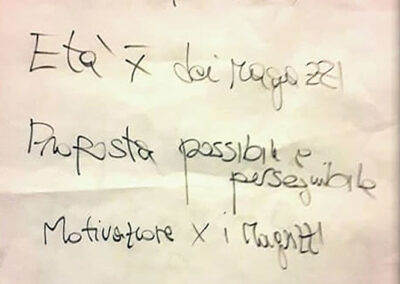 Età x̄ dei ragazzi
Proposta possibile e
perseguibile
Motivatore x i ragazzi